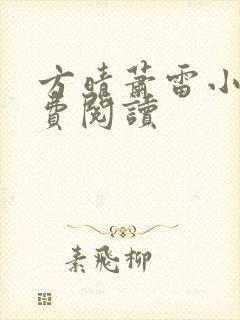 方晴萧雷小
费阅读
素飛柳